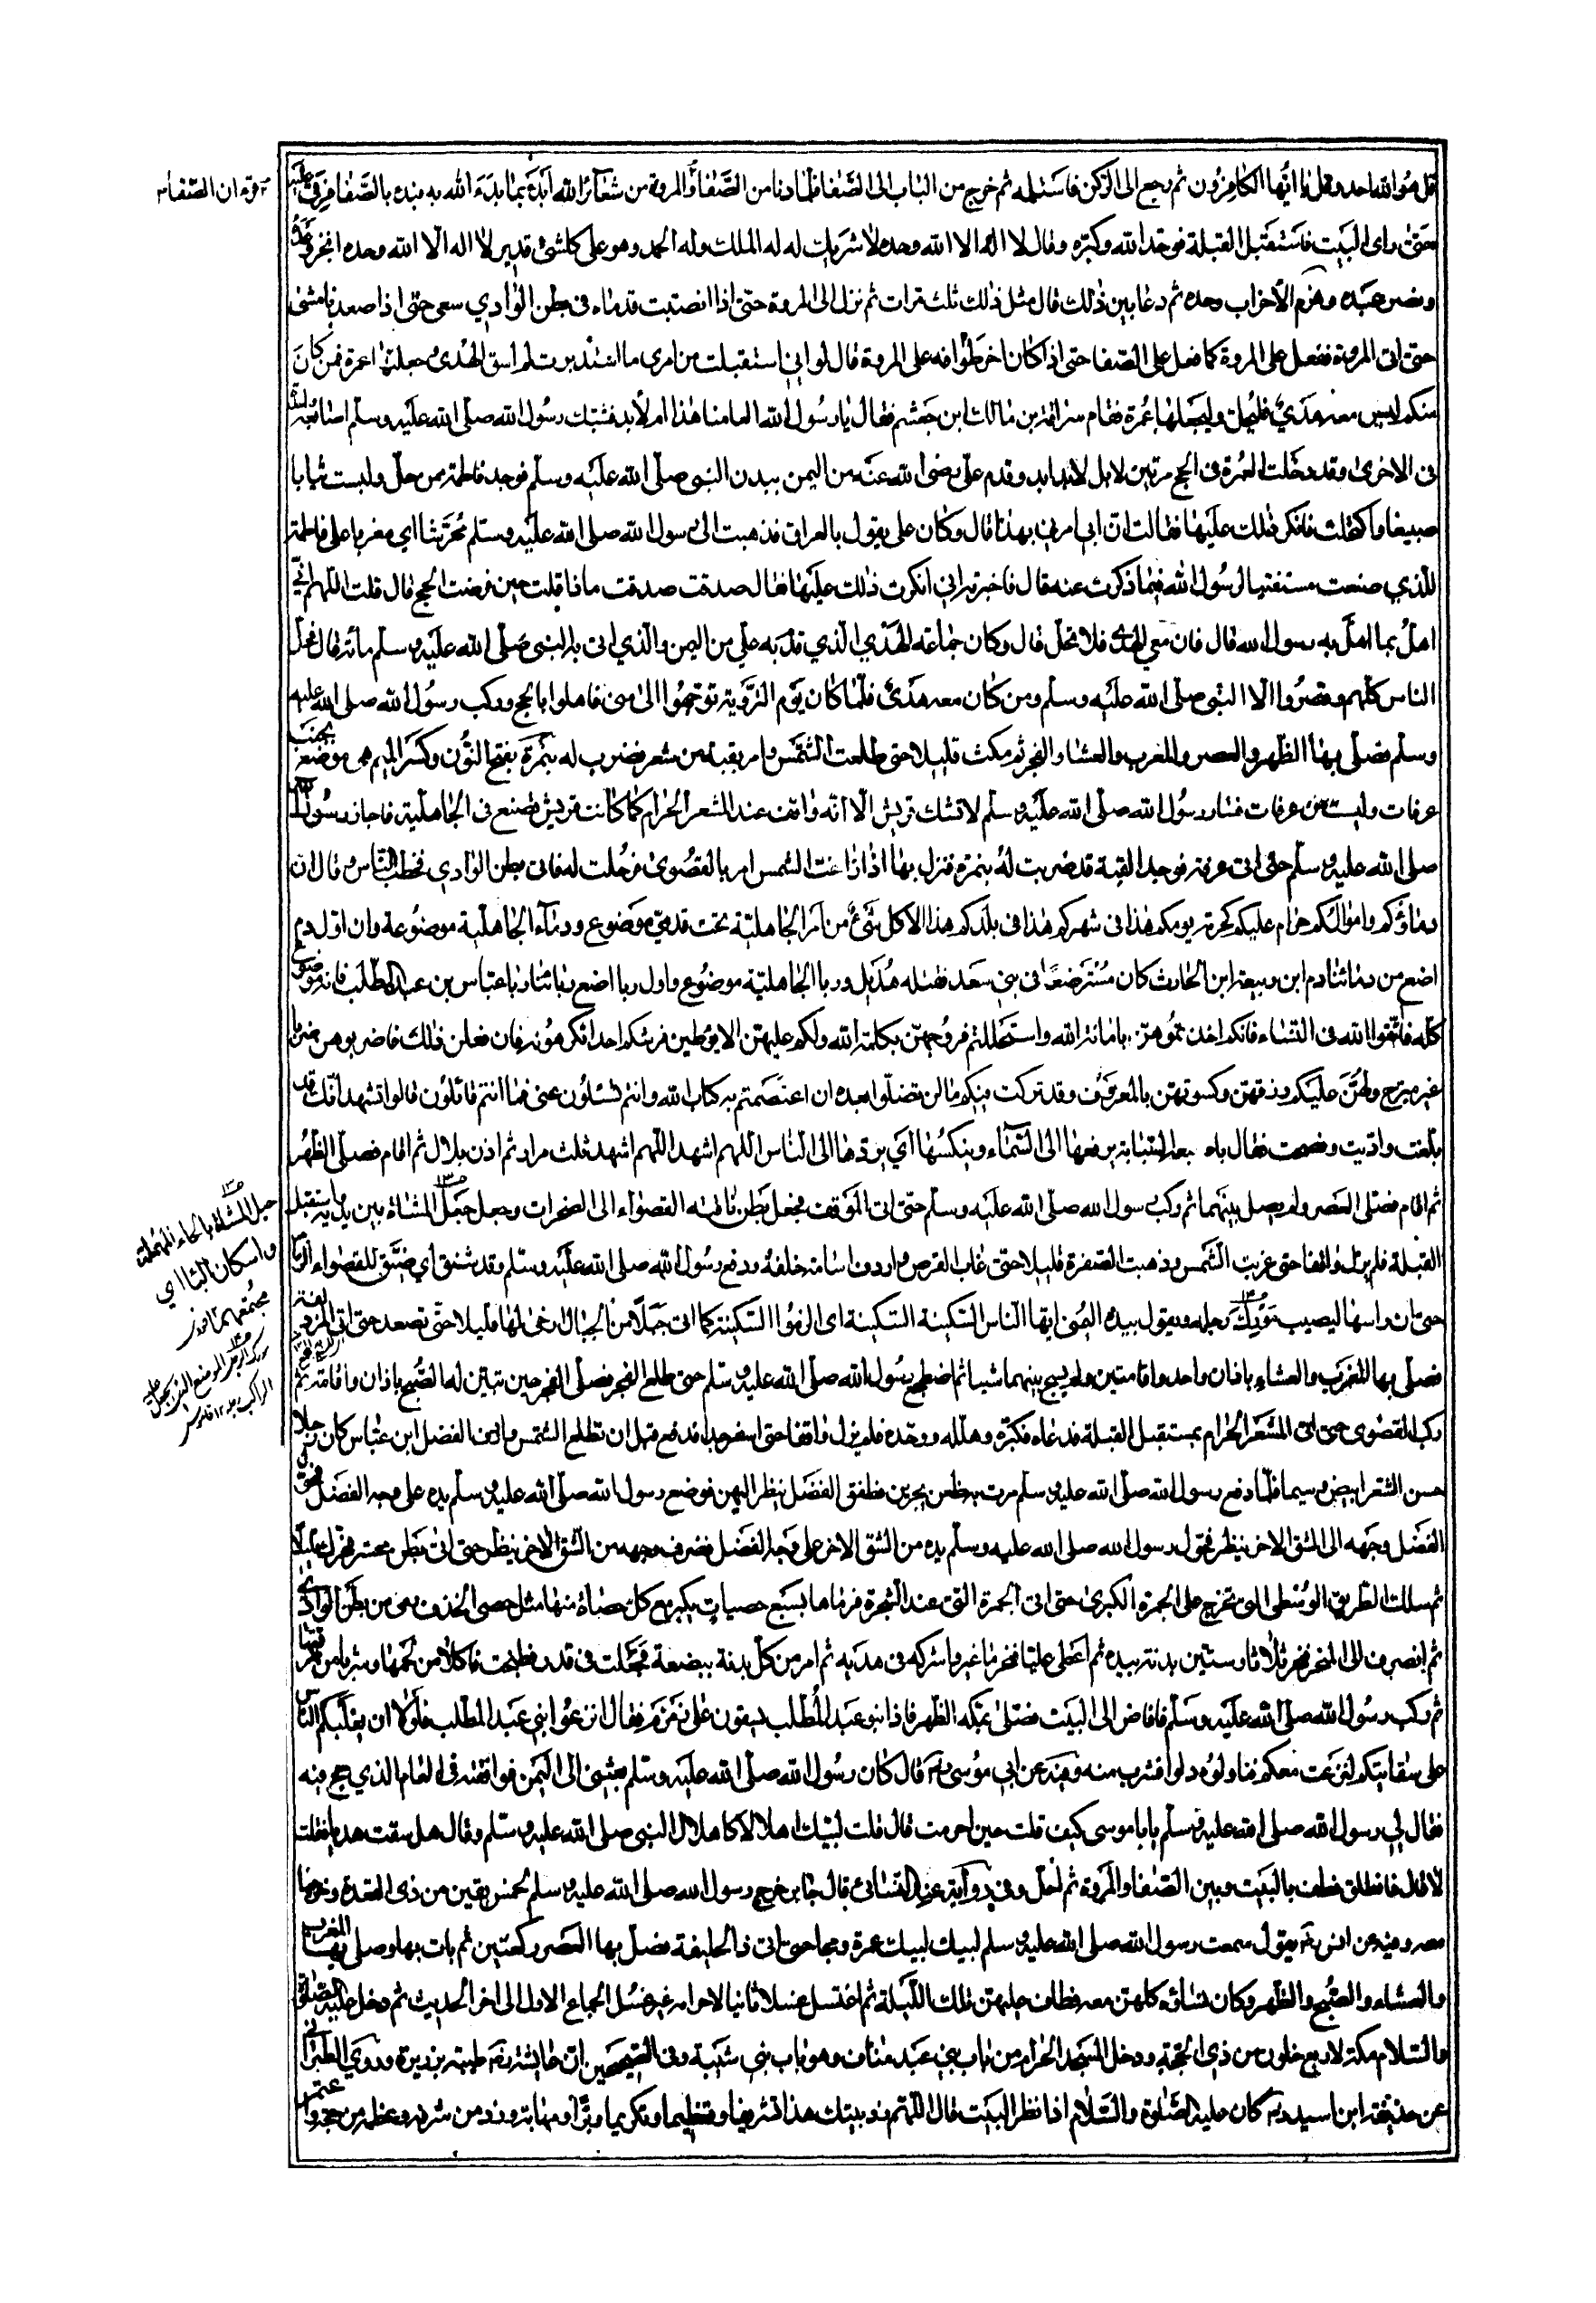 قل هو الله احد وقل يا ايّها الكافرون ثم رجع الى الركن فاستلمه ثم خرج من الباب الى الصّفا فلما دنا من الصّفا قرأ والمروة من شعآئر الله ابدء بما بدء الله به فبدء بالصّفا فرقى عليه
حتى راى البيت فاستقبل القبلة فوحّد الله وكبّره وقال لا اله الا الله وحده لا شريك له له الملك وله الحمد وهو على كلشئ قدير لا اله الّا الله وحده انجز وعده
ونصر عبده وهزم الأحزاب وحده ثم دعا بين ذلك قال مثل ذلك ثلث مرات ثم نزل الى المروة حتى اذا انصتبت قدماه فى بطن الوادي سعى حتى اذا صعدنا مشى
حتى اتى المروة ففعل على المروة كما فعل على الصّفا حتى اذا كان اخر طوافه على المروة قال لو اني استقبلت من امرى ما استدبرت لم اسق الهدى وجعلتها عمرة فمن كان
منكم ليس معه هدي فليحلّ وليجعلها عمرة فقام سراقة بن مالك ابن جعشم فقال يا رسول الله العامنا هذا ام لأبد فشبك رسول الله صلّى الله عليه وسلم اصابعه
فى الاخرى وقد دخلت العمرة فى الحج مرتين لا بل لابد ابد وقدم علىّ رضى الله عنه من اليمن ببدن النبى صلّى الله عليه وسلم فوجد فاطمة ممن حلّ ولبست ثيابا
صبيغا واكتحلت فانكر ذلك عليها فقالت انّ ابي امرني بهذا قال وكان على يقول بالعراق فذهبت الى رسول الله صلى الله عليه وسلم محرّشا اي مغريا على فاطمة
للّذي صنعت مستفتيا لرسول الله فيما ذكرت عنه قال فاخبرته اني انكرت ذلك عليها فقال صدقت صدقت ماذا قلت حين فرضت الحج قال قلت اللهم انّي
اهلّ بما اهلّ به رسول الله قال فان معي الهدى فلا تحلّ قال وكان جماعة الهدي الّذي قدم به علي من اليمن والّذي اتى به النبى صلّى الله عليه وسلم مائة قال فحلّ
الناس كلّهم وقصّروا الّا النّبى صلّى الله عليه وسلم ومن كان معه هدى فلمّا كان يوم التروية توجّهوا الى منى فاهلوا بالحج وركب رسول الله صلى الله عليه
وسلم فصلّى بها الظهر والعصر والمغرب والعشاء والفجر ثم مكث قليلا حتى طلعت الشمس وامر بقبة من شعر فضرب له بنمرة بفتح النّون وكسر الميم هى موضع بجنب
عرفات وليست من عرفات فسار رسول الله صلّى الله عليه وسلم لا تشك قريش الّا انّه واقف عند المشعر الحرام كما كانت قريش تصنع فى الجاهلية فاجاز رسول الله
صلى الله عليه وسلّم حتى اتى عرفة فوجد القبة قد ضربت له بنمرة فنزل بها اذا زاغت الشمس امر بالقصوى فرحلت له فاتى بطن الوادي فخطب الناس وقال ان
دماؤكم واموالكم حرام عليكم كحرمة يومكم هذا فى شهركم هذا فى بلدكم هذا الا كل شئ من امر الجاهليّة تحت قدميّ موضوع ودماء الجاهلية موضوعة وان اوّل دم
اضع من دمائنا دم ابن ربيعة ابن الحارث كان مسترضعا فى بنى سعد فقتله هذيل وربا الجاهليّة موضوع واول ربا اضع ربانا ربا عباس بن عبد المطّلب فانه موضوع
كلّه فاتقوا الله فى النّساء فانكم اخذتموهنّ بامانة الله واستحللتم فروجهنّ بكلمة الله ولكم عليهنّ الا يوطين فرشكم احدا تكرهونه فان فعلن ذلك فاضربوهن ضربا
غير مبرح ولهنّ عليكم رزقهنّ وكسوتهن بالمعروف وقد تركت فيكم ما لن تضلّوا بعده ان اعتصمتم به كتاب الله وانتم تسئلون عنى فما انتم قائلون قالوا نشهد انّك قد
بلّغت وادّيت ونصحت فقال باصبعه السّبابة يرفعها الى السّماء وينكسها اي يردها الى الناس اللهم اشهد اللهم اشهد ثلث مرار ثم اذن بلال ثم اقام فصلّى الظهر
ثم اقام فصلّى العصر ولم يصل بينهما ثم ركب رسول الله صلّى الله عليه وسلّم حتى اتى الموقف فجعل بطن ناقته القصواء الى الصخرات وجعل حبل المشاة بين يديه واستقبل
القبلة فلم يزل واقفا حتى غربت الشّمس وذهبت الصّفرة قليلا حتى غاب القرص واردف اسامة خلفه ودفع رسول الله صلى الله عليه وسلّم وقد شنق اي ضيّق للقصواء الزمام
حتى ان راسها ليصيب مورك رجله ويقول بيده اليمنى ايها الناس السّكينة السّكينة اى الزموا السّكينة كلما اتى حبلا من الحبال ارخى لها قليلا حتى تصعد حتى اتى المزدلفة
فصلّى بها المغرب والعشاء باذان واحد واقامتين ولم يسبح بينهما شيا ثم اضطجع رسول الله صلى الله عليه وسلم حتى طلع الفجر فصلّى الفجر حين تبين له الصّبح باذان واقامة ثم
ركب القصوى حتى اتى المشعر الحرام فاستقبل القبلة فدعاه فكبّره وهلله ووحّده فلم يزل واقفا حتى اسفر جدا فدفع قبل ان تطلع الشّمس واردف الفضل ابن عبّاس كان رجلا
حسن الشّعر ابيض وسيما فلمّا دفع رسول الله صلى الله عليه وسلّم مرت به ظعن يجرين فطفق الفضل ينظر اليهن فوضع رسول الله صلى الله عليه وسلّم يده على وجه الفضل فحوّل
الفضل وجهه الى الشق الاخر ينظر فحوّل رسول الله صلى الله عليه وسلّم يده من الشق الاخر على وجه الفضل فصرف وجهه من الشّق الاخر ينظر حتى اتى بطن محسر فحرّك قليلا
ثم سلك الطريق الوسطى التى تخرج على الجمرة الكبرى حتى اتى الجمرة التى عند الشّجرة فرماها بسبع حصيات يكبر مع كل حصاة منها مثل حصى الخذف رمى من بطن الوادي
ثم انصرف الى المنحر فنحر ثلاثا وستين بدنة بيده ثم اعطى عليّا فنحر ما غبر واشركه فى هديه ثم امر من كلّ بدنة ببضعة فجعلت فى قدر فطبخت فاكلا من لحمها وشربا من مرقها
ثم ركب رسول الله صلى الله عليه وسلم فافاض الى البيت فصلّى بمكه الظهر فاتى بنو عبد المطلب يسقون على زمزم فقال انزعوا بنى عبد المطلب فلولا ان يغلبكم الناس
على سقايتكم لنزعت معكم فناولوه دلوا فشرب منه وفيه عن ابي موسى رض قال كان رسول الله صلى الله عليه وسلّم بعثنى الى اليمن فوافقته فى العام الذي حج فيه
فقال لي رسول الله صلى الله عليه وسلّم يا با موسى كيف قلت حين احرمت قال قلت لبيك اهلالا كاهلال النبى صلى الله عليه وسلّم وقال هل سقت هديا فقلت
لا قال فانطلق فطف بالبيت وبين الصّفا والمروة ثم احلّ وفى رواية عند النسائى قال جابر خرج رسول الله صلى الله عليه وسلم لخمس بقين من ذى القعدة وخرجنا
معه وفيه عن انس رض يقول سمعت رسول الله صلى الله عليه وسلم لبيك لبيك عمرة وحجا حتى اتى ذا الحليفة فصلى بها العصر ركعتين ثم بات بها وصلى بها المغرب
والعشاء والصّبح والظهر وكان نساؤه كلهنّ معه فطاف عليهنّ تلك الليلة ثم اغتسل غسلا ثانيا لاحرامه غير غسل الجماع الاول الى اخر الحديث ثم دخل عليه الصلوة
والسّلام مكة لاربع خلون من ذي الحجّة ودخل المسجد الحرام من باب بنى عبد مناف وهو باب بنى شيبة وفى الصّحيحين انّ عائشة رض طيبته بذريرة وروى الطبرانى
عن حذيفة ابن اسيد رض كان عليه الصّلوة والسّلام اذا نظر البيت قال اللّهم زد بيتك هذا تشريفا وتعظيما وتكريما وبرّا ومهابة وزد من شرفه وعظمه من حجه واعتمر
قوله ان الصّفا
حبل المشاة بالحاء المهملة
واسكان الباء اي
مجتمعهم